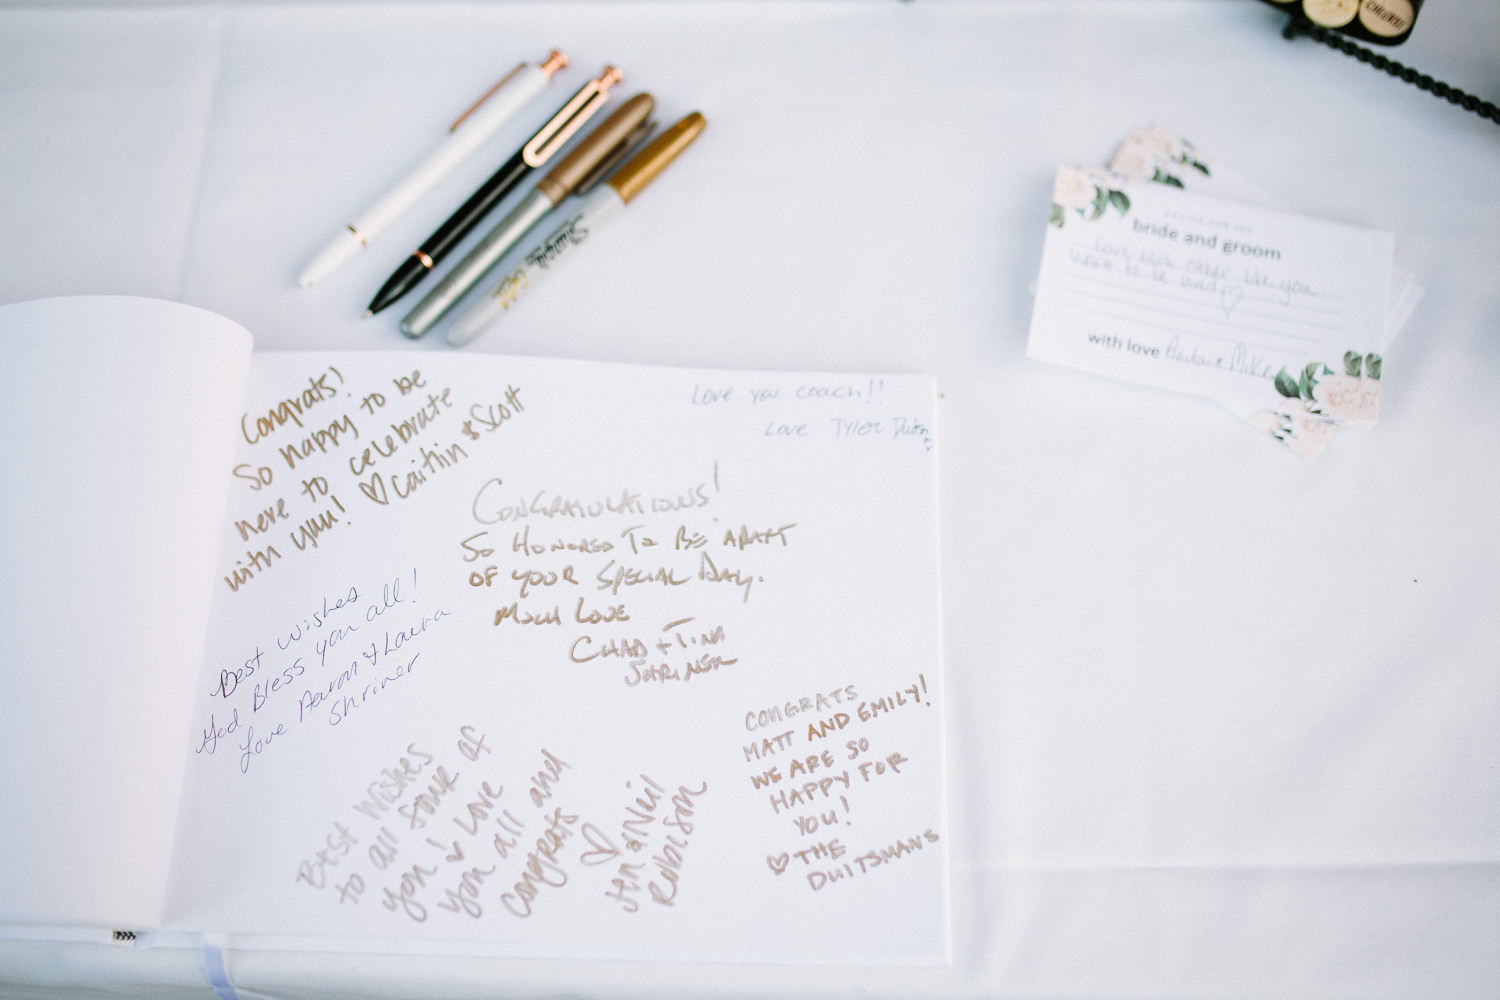 Congrats!
So happy to be
here to celebrate
with you! ♡ Caitlin & Scott
Love you coach!!
Love Tyler
CONGRATULATIONS!
SO HONORED TO BE APART
OF YOUR SPECIAL DAY.
MUCH LOVE
CHAD + TINA
SHRINER
Best Wishes
God Bless you all!
Love Aaron & Laura
Shriner
Best Wishes
to all four of
you ♡ Love
you all and
congrats
♡
Jen & Neil
Robison
CONGRATS
MATT AND EMILY!
WE ARE SO
HAPPY FOR
YOU!
♡ THE
DUITSMANS
Sharpie
Gold
bride and groom
Love each other like you
want to be loved ♡
with love & Mike